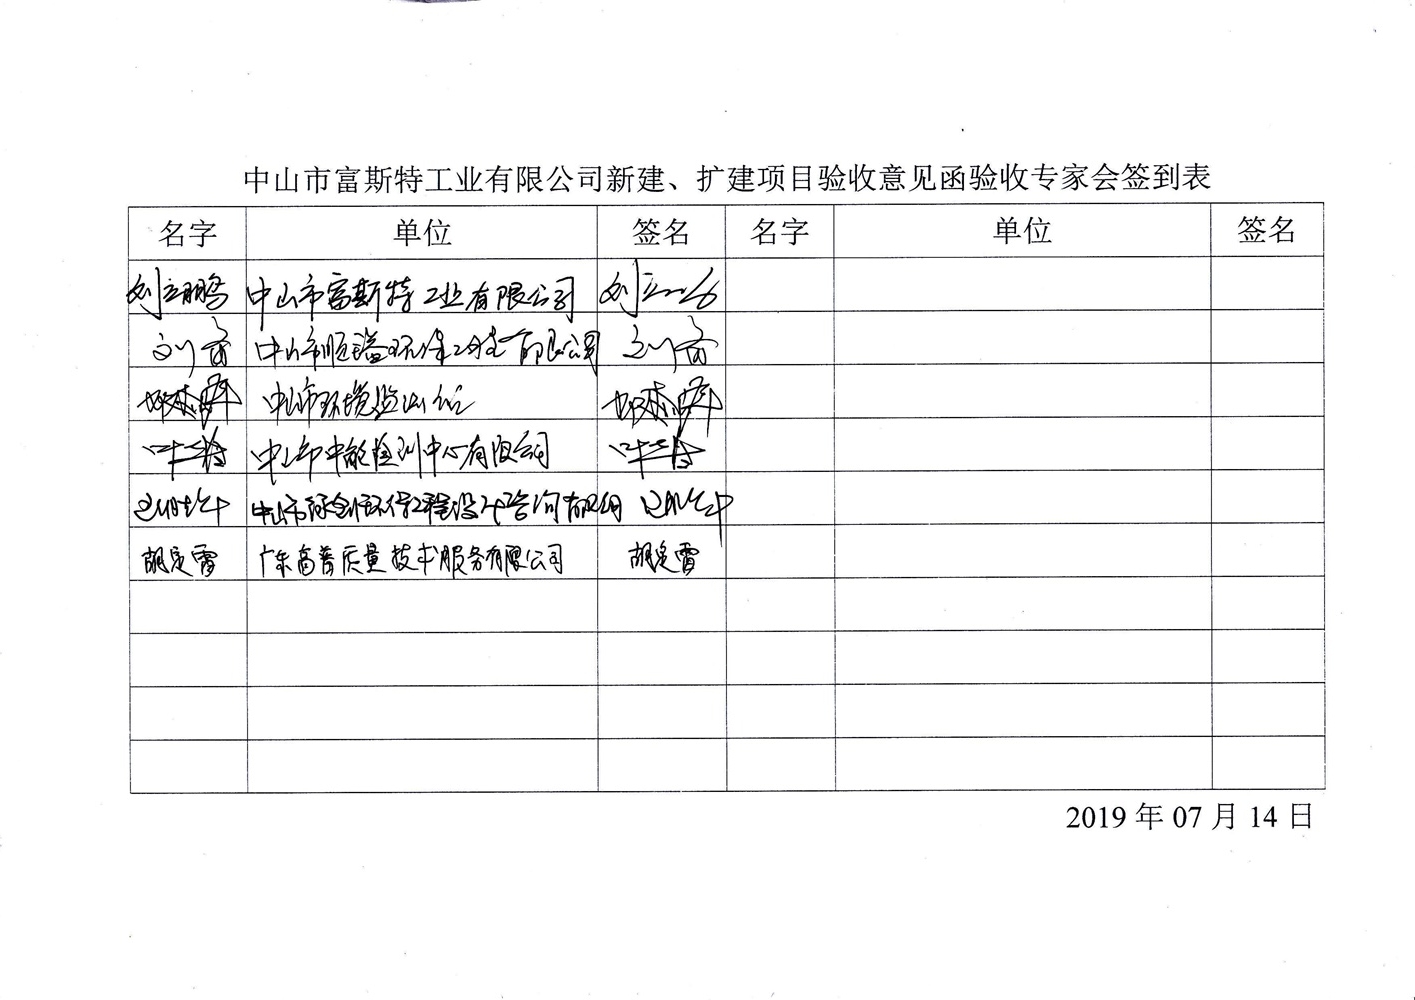 中山市富斯特工业有限公司新建、扩建项目验收意见函验收专家会签到表
名字 单位 签名 名字 单位 签名
刘立鹏 中山市富斯特工业有限公司 刘立
刘 中山市顺 环保工程有限公司 刘
中山市环境监
叶 中山市中能检测中心有限公司 叶
中山市 环保工程设计咨询有限公司
胡定雷 广东高普质量技术服务有限公司 胡定雷
2019 年 07 月 14 日